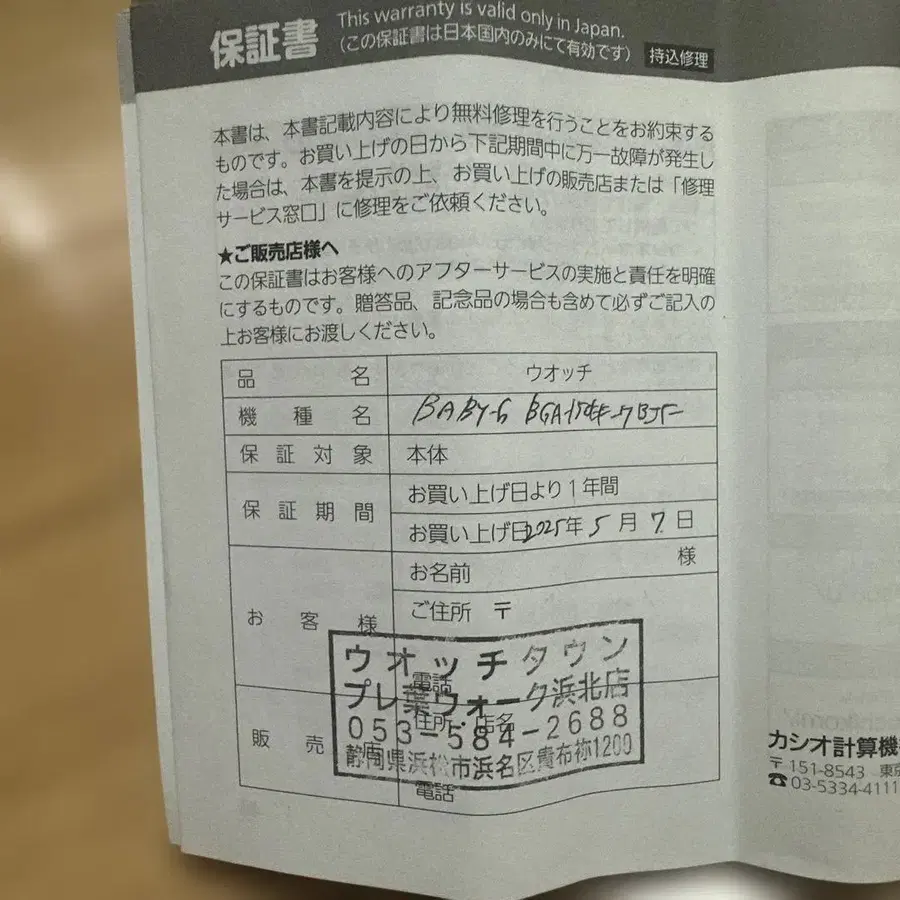 保証書
This warranty is valid only in Japan.
（この保証書は日本国内のみにて有効です）
持込修理
本書は、本書記載内容により無料修理を行うことをお約束する
ものです。お買い上げの日から下記期間中に万一故障が発生し
た場合は、本書を提示の上、お買い上げの販売店または「修理
サービス窓口」に修理をご依頼ください。
★ご販売店様へ
この保証書はお客様へのアフターサービスの実施と責任を明確
にするものです。贈答品、記念品の場合も含めて必ずご記入の
上お客様にお渡しください。
品名 ウオッチ
機種名 BABY-G
保証対象 本体
保証期間 お買い上げ日より1年間
お買い上げ日2025年5月7日
お客様 お名前 様
ご住所 〒
電話
販売 住所・店名
電話
ウオッチタウン
プレ葉ウォーク浜北店
053-584-2688
静岡県浜松市浜名区貴布祢1200
カシオ計算機
〒151-8543 東京
☎03-5334-4111